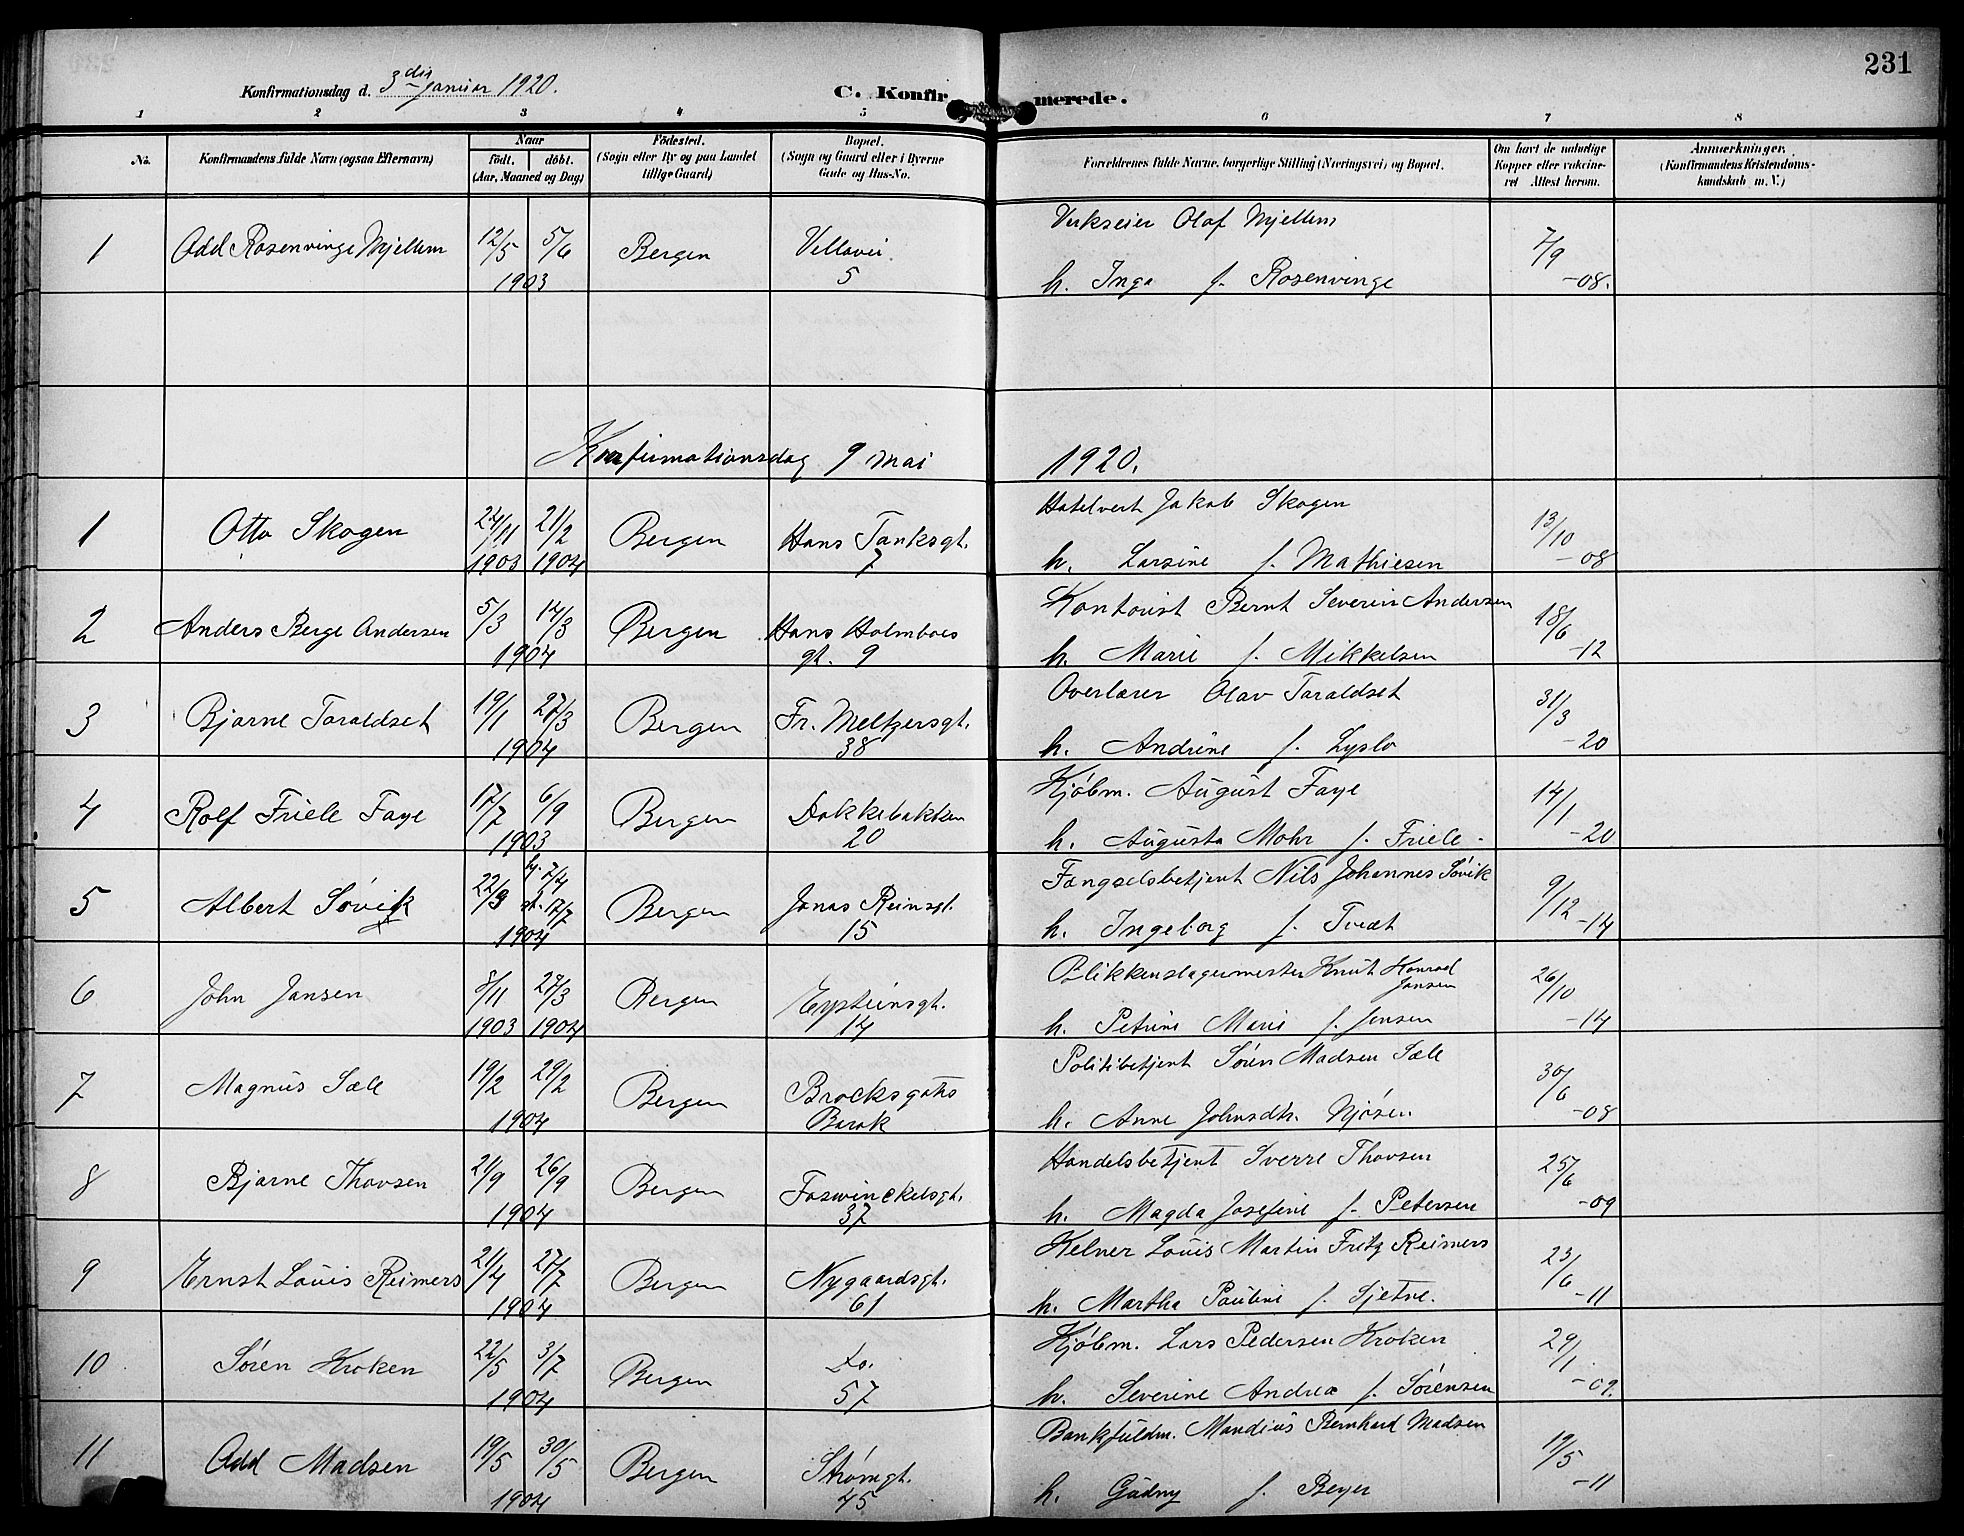 231
Konfirmationsdag d. 3die Januar 1920. C. Konfirmerede.
1 2 3 4 5 6 7 8
No. Konfirmandens fulde Navn (ogsaa Efternavn) Naar födt. döbt. (Aar, Maaned og Dag) Födested. (Sogn eller By og paa Landet tillige Gaard) Bopæl. (Sogn og Gaard eller i Byerne Gade og Hus-No. Forældrenes fulde Navne, borgerlige Stilling (Næringsvei) og Bopæl. Om havt de naturlige Kopper eller vakcineret Attest herom. Anmærkninger. (Konfirmandens Kristendomskundskab m. V.)
1 Odd Rosenvinge Mjellem 12/5 5/6 Bergen Villavei. Verkseier Olaf Mjellem 7/9
1903 5 h. Inga f. Rosenvinge -08.
Konfirmationsdag 9 Mai 1920.
1 Otto Skogen 24/11 21/2 Bergen Hans Tanksgt. Hotelvert Jakob Skogen 13/10
1903 1904 7 h. Larsine f. Mathiesen -08
2 Anders Berge Andersen 5/3 17/3 Bergen Hans Holmboes Kontorist Bernt Severin Andersen 18/6
1904 gt. 9 h. Marie f. Mikkelsen -12
3 Bjarne Taraldset 19/1 27/3 Bergen Fr. Meltzersgt. Overlærer Olav Taraldset 31/3
1904 38 h. Andrine f. Lyslo -20
4 Rolf Friele Faye 17/7 6/9 Bergen Dokkebakken Kjøbm. August Faye 14/1
1903 20 h. Augusta Mohr f. Friele -20
5 Albert Søvik 22/3 hj. 7/4 st. 17/7 Bergen Jonas Reinsgt. Fængselsbetjent Nils Johannes Søvik 9/12
1904 15 h. Ingeborg f. Tveit -14
6 John Jansen 8/11 27/3 Bergen Eysteinsgt. Blikkenslagermester Knut Konrad Jansen 26/10
1903 1904 14 h. Petrine Marie f. Jensen -14
7 Magnus Sæle 19/2 29/2 Bergen Brocksgates Politibetjent Søren Madsen Sæle 30/6
1904 Barak h. Anne Johnsdtr. Njøsen -08
8 Bjarne Thovsen 21/9 26/9 Bergen Foswinckelsgt. Handelsbetjent Sverre Thovsen 25/6
1904 37 h. Magda Josefine f. Petersen -09
9 Ernst Louis Reimers 21/4 27/7 Bergen Nygaardsgt. Kelner Louis Martin Fritz Reimers 23/6
1904 61 h. Martha Pauline f. Sjetne. -11
10 Søren Kroken 22/5 3/7 Bergen Do. Kjøbm. Lars Pedersen Kroken 29/1
1904 57 h. Severine Andrea f. Sørensen -09.
11 Odd Madsen 19/5 30/5 Bergen Strømgt. Bankfuldm. Mandius Bernhard Madsen 19/5
1904 45 h. Gudny f. Beyer -11